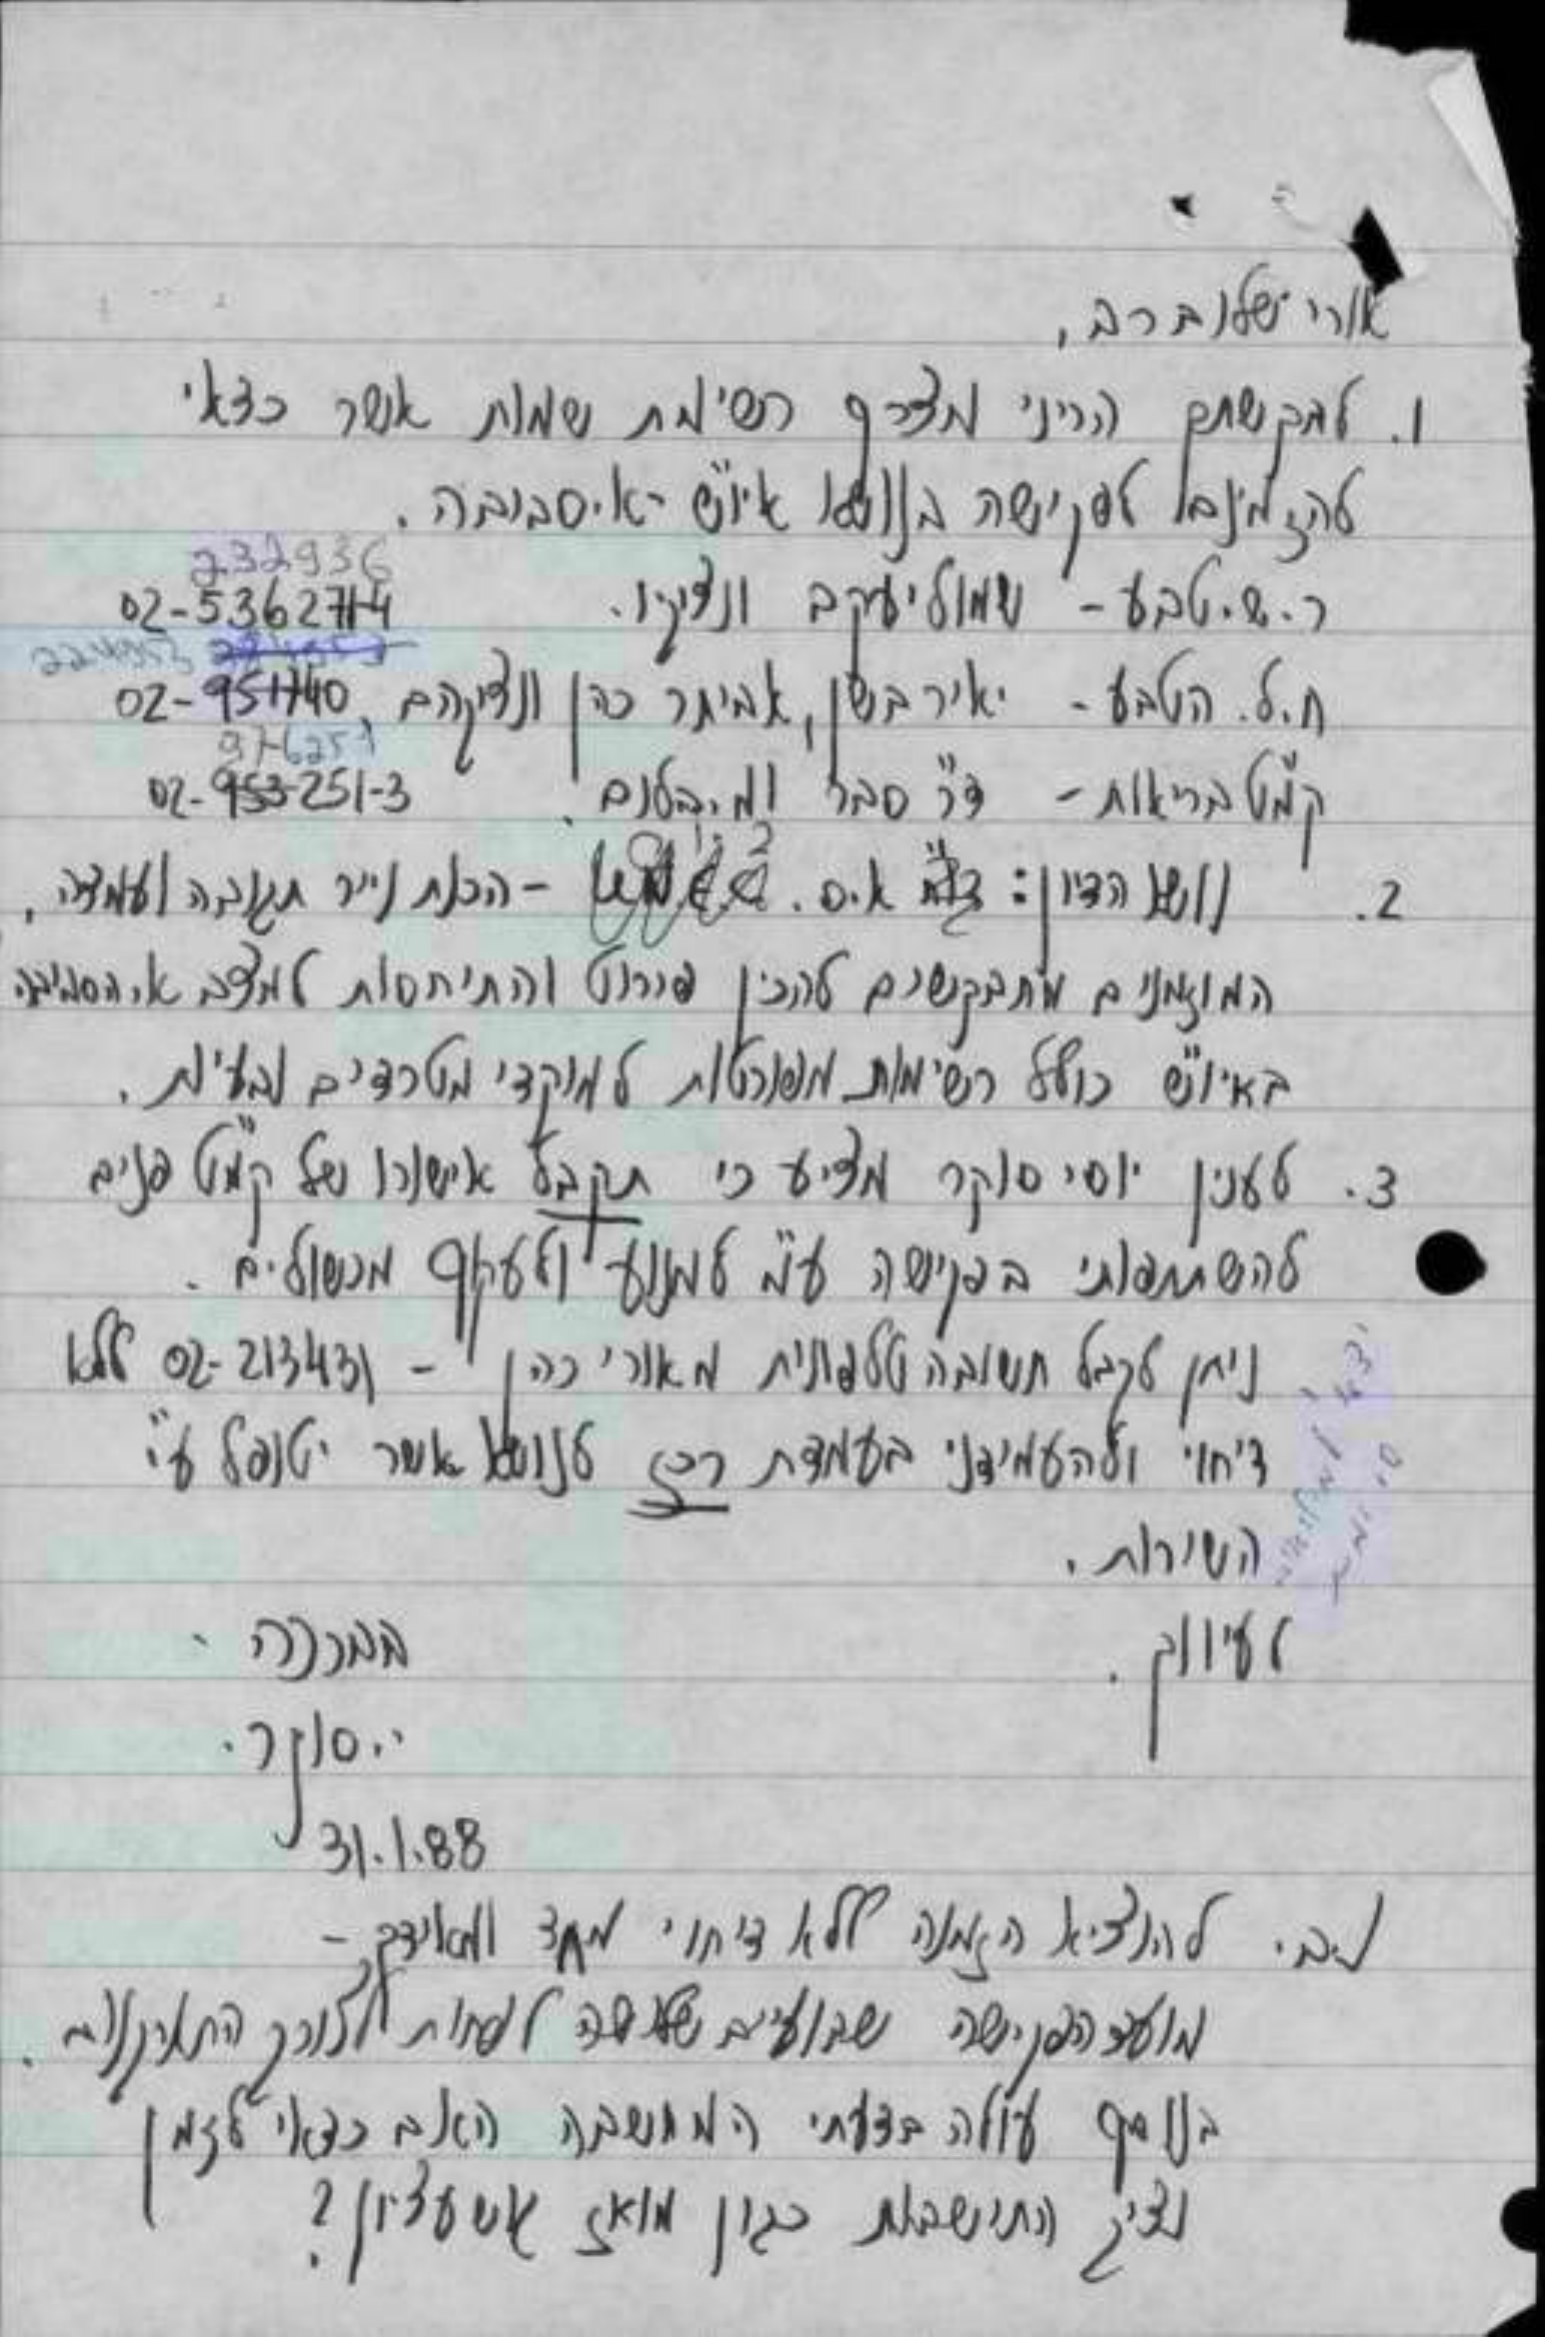 אורי שלום רב,
1. לבקשתם הריני מצרף רשימת שמות אשר כדאי
להזמינם לפגישה בנושא איו"ש - א.סביבה.
232936
ר.ש.טבע - שמוליעקב ונציגיו. 02-5362714
224953
ח.ל. הטבע - יאיר בשן, אביתר כהן ונציגהם, 02-951740
976251
קמ"ט בריאות - ד"ר סבר ומ.יבלום. 02-953251-3
2. נושא הדיון: א.ס. - הכנת נייר תגובה ועמדה.
המוזמנים מתבקשים להכין פירוט והתיחסות למצב א.הסביבה
באיו"ש כולל רשימות מפורטות למוקדי מטרדים ובעיות.
3. לענין יוסי סוקר מציע כי תקבל אישורו של קמ"ט פנים
להשתתפותי בפגישה ע"מ למנוע ולעקוף מכשולים.
ניתן לקבל תשובה טלפונית מאורי כהן - 02-213431 ללא
דיחוי ולהעמידני בעמדת רכז לנושא אשר יטופל ע"י
השירות.
לעיונך.
בברכה
י. סוקר.
31.1.88
נ.ב. להוציא הזמנה ללא דיחוי מחד ומאידך -
מועד הפגישה שבועיים שלושה לפחות לצורך התארגנות.
בנוסף עולה בדעתי המחשבה האם כדאי לזמן
נציג התישבות כגון מואז גוש עציון?